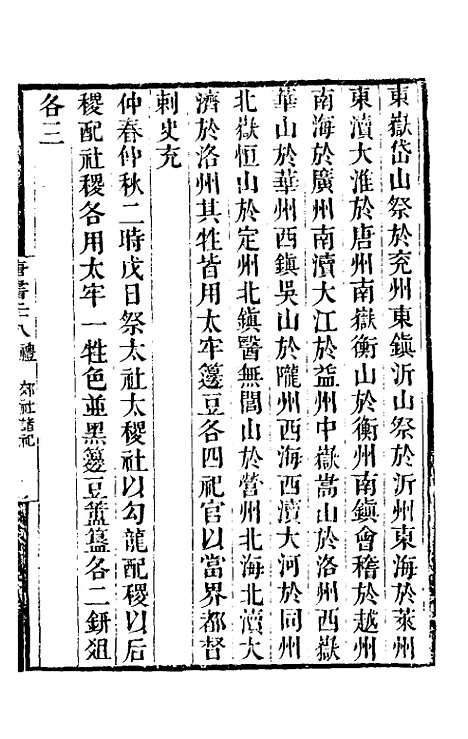 東嶽岱山祭於兖州東鎭沂山祭於沂州東海於萊州
東瀆大淮於唐州南嶽衡山於衡州南鎭會稽於越州
南海於廣州南瀆大江於益州中嶽嵩山於洛州西嶽
華山於華州西鎭吳山於隴州西海西瀆大河於同州
北嶽恒山於定州北鎭醫無閭山於營州北海北瀆大
濟於洛州其牲皆用太牢籩豆各四祀官以當界都督
刺史充
仲春仲秋二時戊日祭太社太稷社以勾龍配稷以后
稷配社稷各用太牢一牲色並黑籩豆簠簋各二鉶俎
各三
禮 郊社諸祀